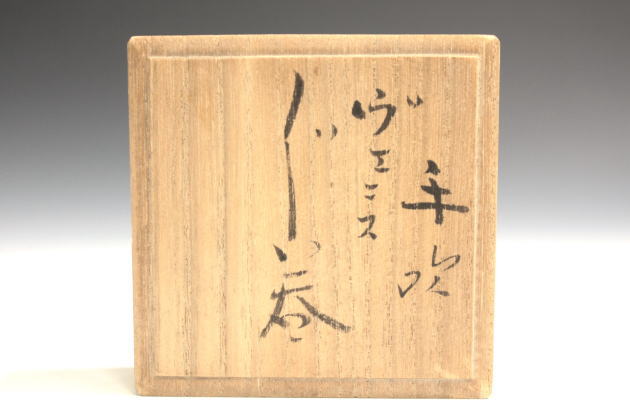 手吹
ヴェニス
ぐい呑